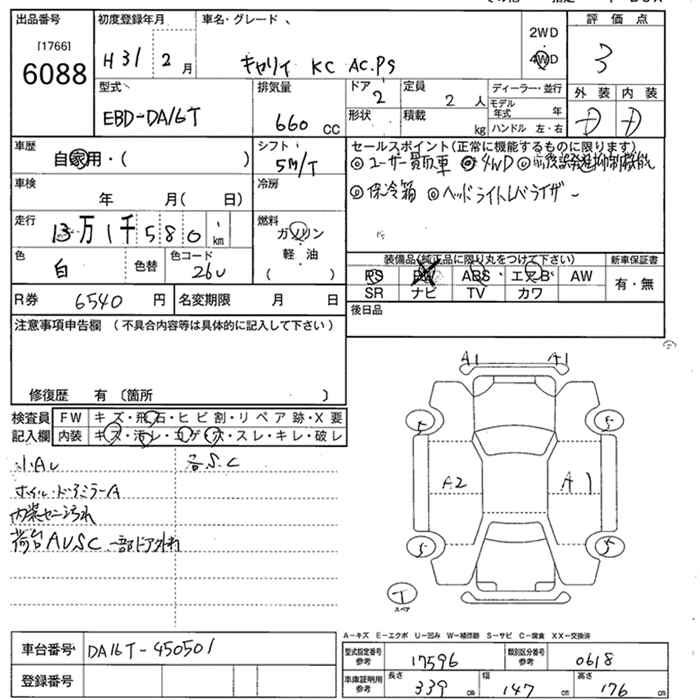 出品番号 初度登録年月 車名・グレード 2WD 評価点
[1766]
6088 H31 2月 キャリイ KC AC.PS 4WD 3
型式 排気量 ドア 定員 ディーラー・並行 外装 内装
2 2人 モデル年式 年
EBD-DA16T 660cc 形状 積載 kg ハンドル 左・右 D D
車歴 シフト セールスポイント(正常に機能するものに限ります)
自家用・( ) 5M/T ◎ユーザー買取車 ◎4WD ◎誤発進抑制機能
車検 冷房
年 月(日) ◎保冷箱 ◎ヘッドライトレベライザー
走行 燃料
13万1千580km ガソリン
色 色替 色コード 軽油 装備品(純正品に限り丸をつけて下さい) 新車保証書
白 26U ( ) PS PW ABS エアB AW 有・無
R券 6540円 名変期限 月 日 SR ナビ TV カワ
注意事項申告欄(不具合内容等は具体的に記入して下さい) 後日品
修復歴 有(箇所 )
A1 A1
5 5
A2 A1
5 5
T
スペア
検査員 FW キズ・飛石・ヒビ割・リペア跡・X要
記入欄 内装 キズ・汚レ・コゲ・穴・スレ・キレ・破レ
小AU 各S.C
ホイル・ドアミラーA
内装セニ汚れ
荷台AUSC 一部ドア外れ
A-キズ E-エクボ U-凹み W-補修跡 S-サビ C-腐食 XX-交換済
車台番号 DA16T-450501 型式指定番号 参考 17596 類別区分番号 参考 0618
登録番号 車庫証明用 参考 長さ 339cm 幅 147cm 高さ 176cm